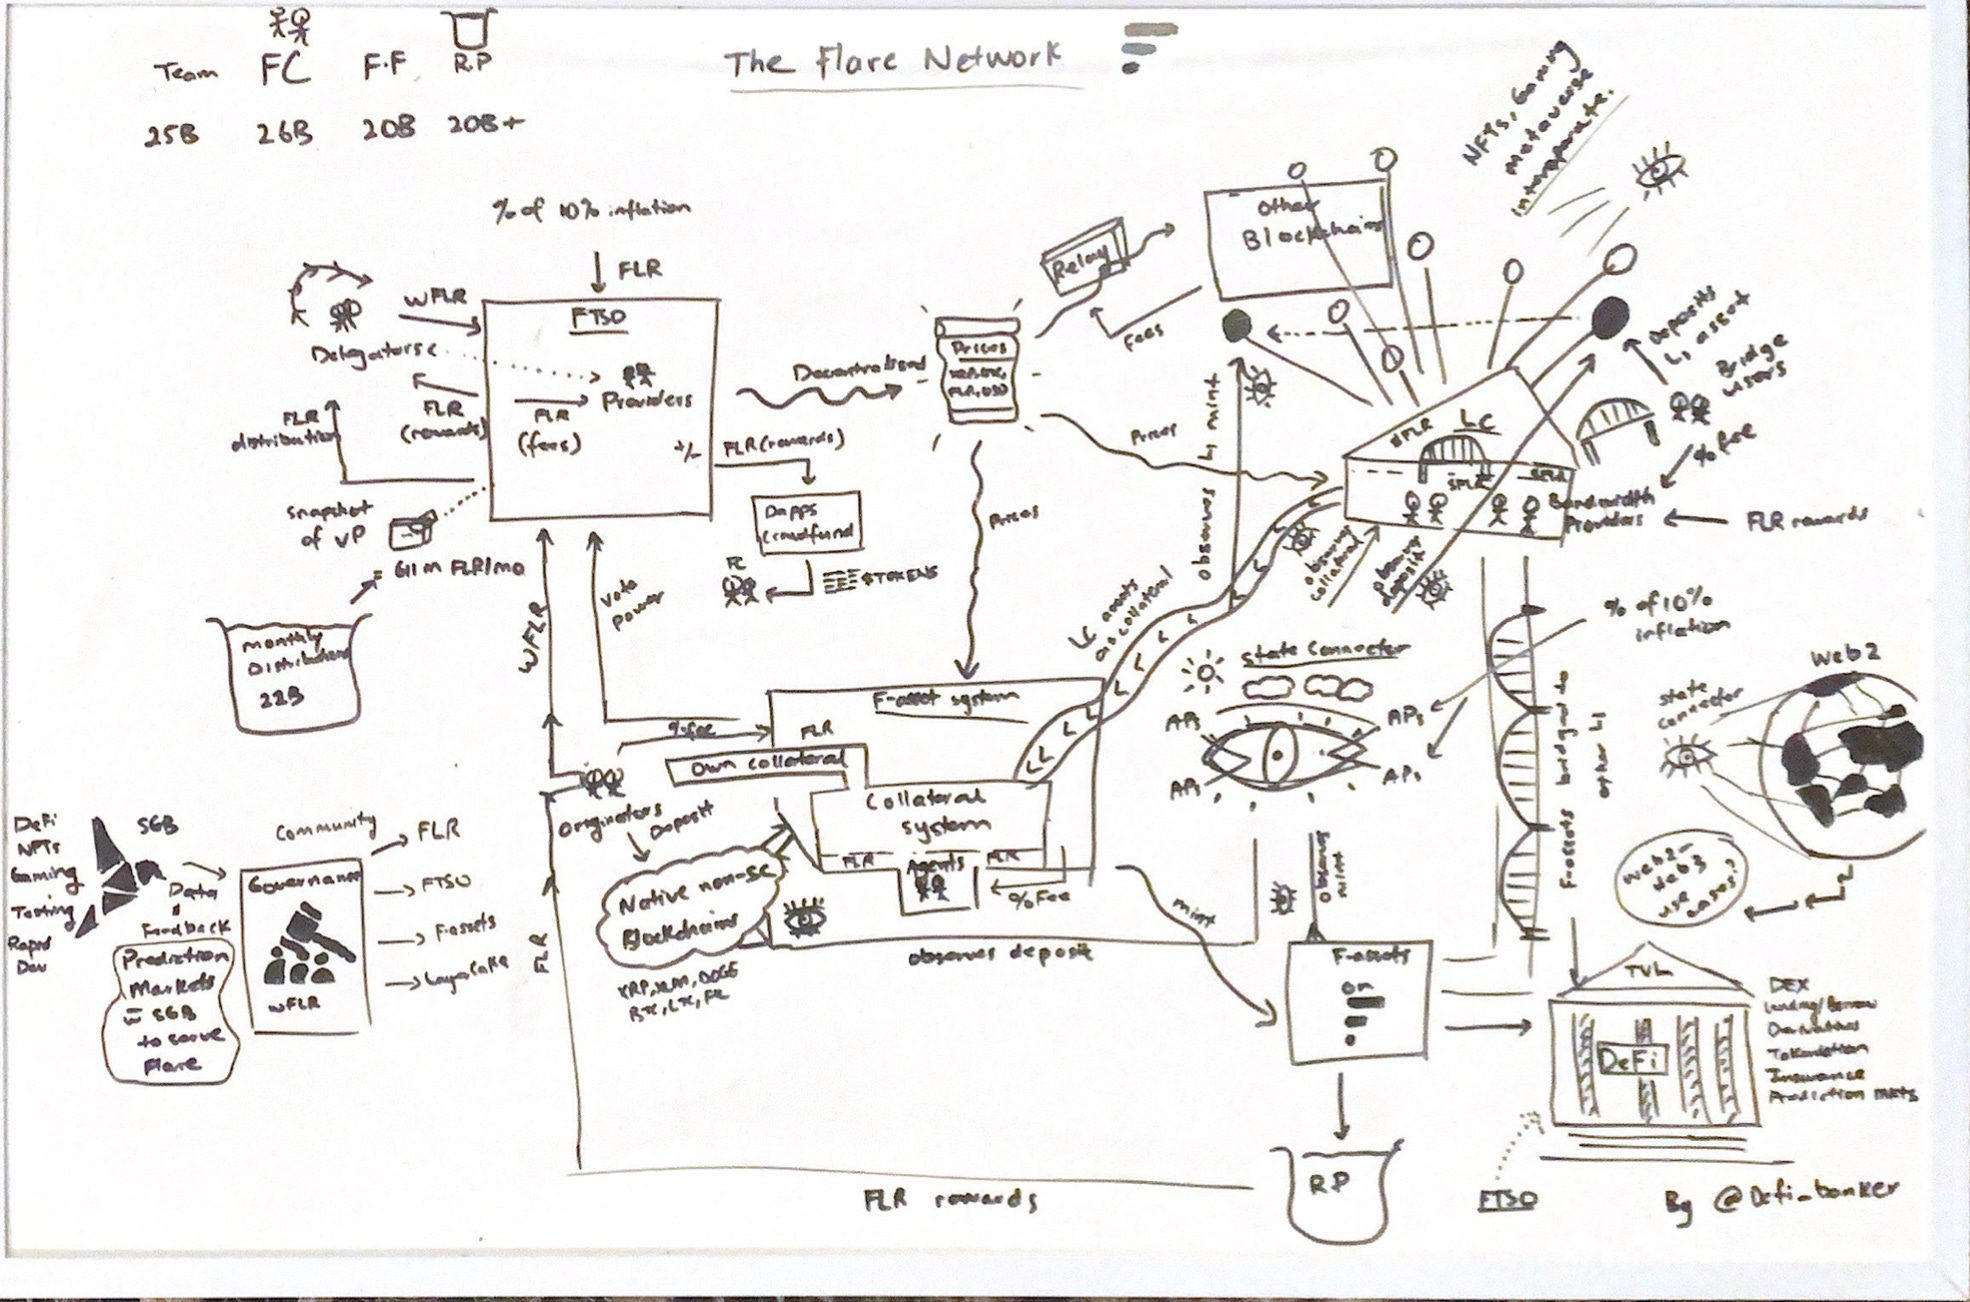 The Flare Network
Team FC F.F R.P
25B 26B 20B 20B+
% of 10% inflation
FLR
WFLR
FTSO
Delegators
Providers
FLR
(rewards)
FLR
(fees)
+/-
FLR
distribution
Snapshot
of VP
611m FLR/mo
Monthly
22B
Decentralised
FLR (rewards)
Dapps
crowdfund
FC
$TOKENS
Prices
Relay
Fees
Other
Blockchains
NFTs, Gaming
Metaverse
interoperate.
Prices
Prices
LC
$FLR
Deposits
L1 asset
Bridge
users
% fee
Bandwidth
Providers
FLR rewards
observes L1 mint
observing
collateral
observing
deposit
LC assets
as collateral
WFLR
Vote
power
% fee
F-asset system
FLR
Own collateral
Collateral
system
FLR Agents FLR
% Fee
Originators
Deposit
Native non-SC
Blockchains
XRP, XLM, DOGE
observes deposit
mint
State Connector
APIs
APIs
APIs
APIs
% of 10%
inflation
Web2
State
Connector
F-assets bridged to
other L1
Web2-
Web3
use
cases?
observing
mint
F-assets
on
TVL
DeFi
DEX
Lending/Borrow
Derivatives
Tokenisation
Insurance
Prediction mkts
FTSO
RP
FLR rewards
FLR
DeFi
NFTs
Gaming
Testing
Rapid
Dev
SGB
Data
&
Feedback
Prediction
Markets
w SGB
to serve
Flare
Community
Governance
WFLR
FLR
FTSO
F-assets
Layercake
By @Defi_banker